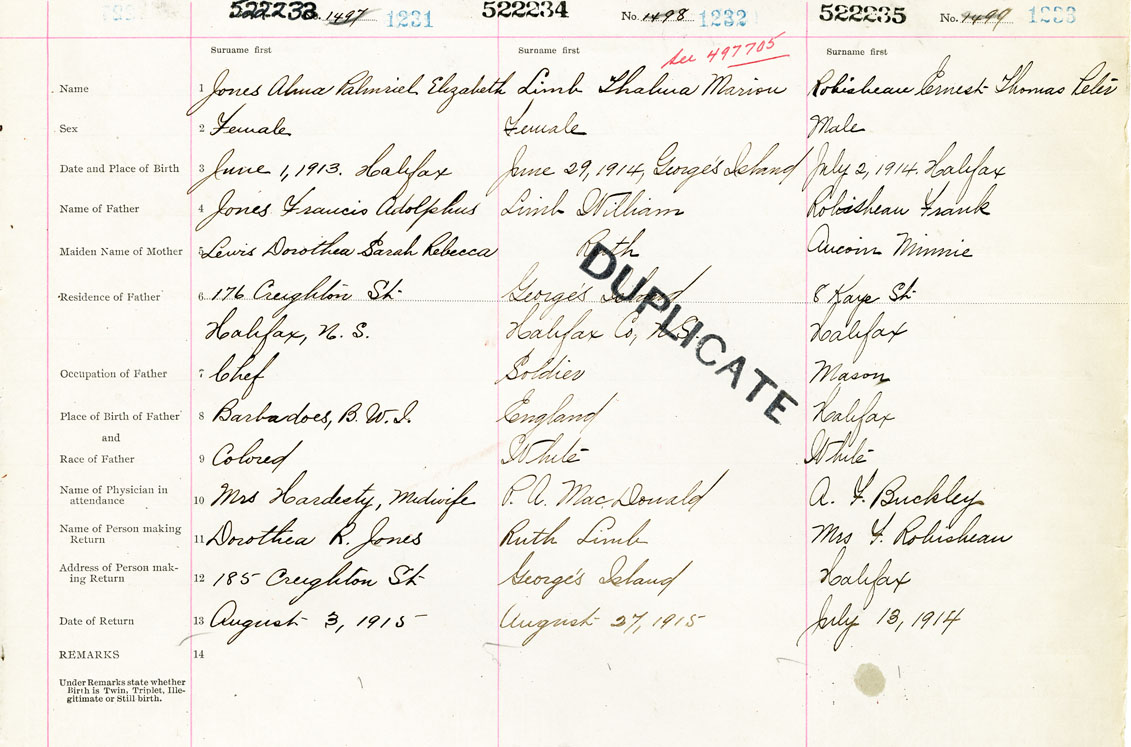 522233 No. 1497 1231 522234 No. 1498 1232 522235 No. 1499 1233
Surname first Surname first see 497705 Surname first
Name 1 Jones Alma Palmriel Elizabeth Limb Thalma Marion Robisheau Ernest Thomas Peter
Sex 2 Female Female Male
Date and Place of Birth 3 June 1, 1913. Halifax June 29, 1914, George's Island July 2, 1914. Halifax
Name of Father 4 Jones Francis Adolphus Limb William Robisheau Frank
Maiden Name of Mother 5 Lewis Dorothea Sarah Rebecca Ruth Aucoin Minnie
Residence of Father 6 176 Creighton St George's Island 8 Kaye St
Halifax, N. S. Halifax Co, N.S. Halifax
DUPLICATE
Occupation of Father 7 Chef Soldier Mason
Place of Birth of Father 8 Barbadoes, B. W. I. England Halifax
and
Race of Father 9 Colored White White
Name of Physician in
attendance 10 Mrs Hardesty, Midwife P. A. MacDonald A. F. Buckley
Name of Person making
Return 11 Dorothea R. Jones Ruth Limb Mrs F. Robisheau
Address of Person mak-
ing Return 12 185 Creighton St George's Island Halifax
Date of Return 13 August 3, 1915 August 27, 1915 July 13, 1914
REMARKS 14
Under Remarks state whether
Birth is Twin, Triplet, Ille-
gitimate or Still birth.